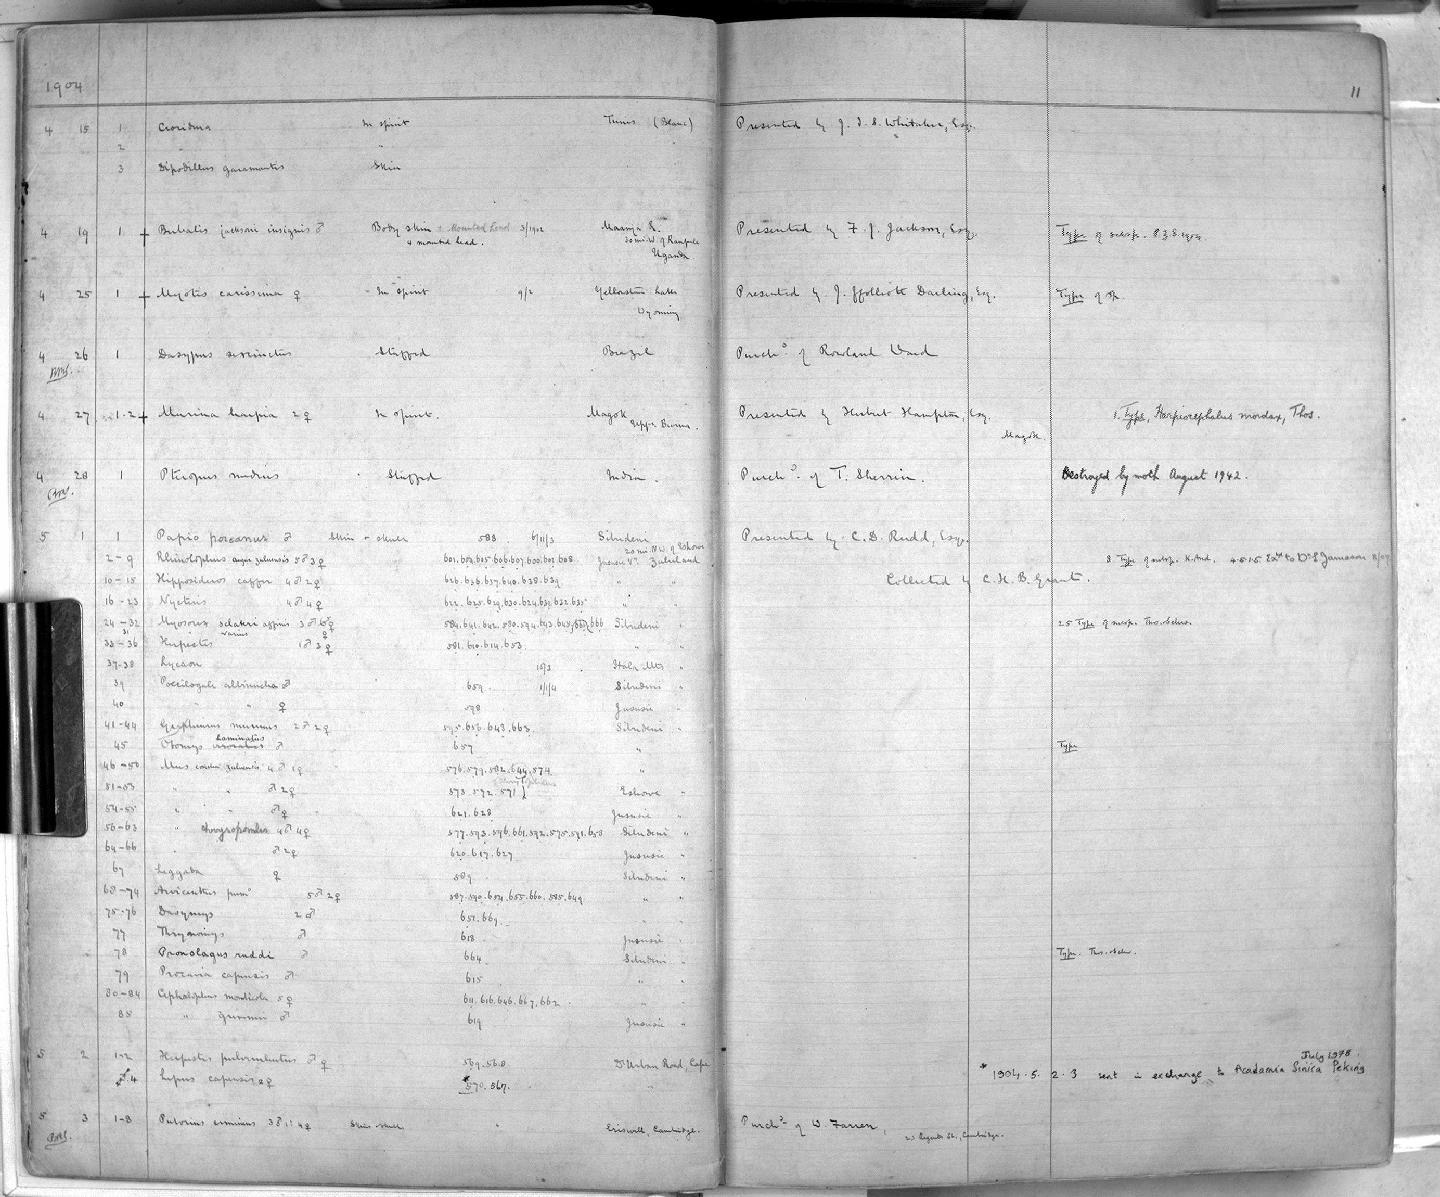 1904
11
4 15 1 Crocidura In spirit Tunis (Blanc) Presented by J. I. S. Whitaker, Esq.
2 " "
3 Dipodillus garamantis Skin
4 19 1 + Bubalis jacksoni insignis ♂ Body skin + Mounted Head 3/1902 Maanja R. Presented by F. J. Jackson, Esq. Type of subsp. P.Z.S.
& mounted head. 30 mi. W. of Kampala
Uganda
4 25 1 + Myotis carissima ♀ In Spirit 9/2 Yellowstone Lake Presented by J. ffolliott Darling, Esq. Type of sp.
Wyoming
4 26 1 Dasypus sexcinctus Stuffed Brazil Purchd of Rowland Ward
4 27 1-2 + Murina harpia 2♀ In Spirit. Magok Presented by Herbert Hampton, Esq. 1. Type, Harpiocephalus mordax, Thos.
Upper Burma. Magok.
4 28 1 Pteropus medius Stuffed India. Purchd of T. Sherrin. Destroyed by moth August 1942.
5 1 1 Papio porcarius ♂ Skin + skull 588 6/11/3 Sibudeni Presented by C. D. Rudd, Esq.
20 mi. N.W. of Eshowe
2-9 Rhinolophus augur zuluensis 5♂3♀ Jususie Vy. Zululand 8 Type of subsp. K. And.
10-15 Hipposideros caffer 4♂2♀ 626.636.637.640.638.639 " " Collected by C. H. B. Grant.
16-23 Nycteris 4♂4♀ " "
24-32 Myosorex sclateri affinis Sibudeni " 25 Type of subsp. Thos. & Schw.
varius
33-36 Herpestes 1♂3♀ 581.610.614.653 " "
37-38 Lycaon 10/3 Itala Mts "
39 Poecilogale albinucha ♂ 659. 1/1/4 Sibudeni "
40 " " ♀ 598 Jususie "
41-44 Graphiurus murinus 2♂2♀ Sibudeni "
laminatus
45 Otomys irroratus ♂ 657 " Type
46-50 Mus coucha zuluensis 4♂1♀ 576.577.582.644.574 "
51-53 " " ♂2♀ 573.572.571 Eshowe "
54-55 " " ♂♀ 621.628 Jususie "
56-63 " chrysophilus 4♂4♀ Sibudeni "
64-66 " ♂2♀ 620.617.627 Jususie "
67 Leggada ♀ 589 Sibudeni "
68-74 Arvicanthis pumi 5♂2♀ " "
75-76 Dasymys 2♂ 651.669 " "
77 Thryonomys ♂ 618 Jususie "
78 Pronolagus ruddi ♂ 664. Sibudeni " Type. Thos. & Schw.
79 Procavia capensis ♂ 615 " "
80-84 Cephalophus monticola 5♀ 611.616.646.667.662 " "
85 " grimmi ♂ 619 Jususie "
5 2 1-2 Herpestes pulverulentus ♂♀ 569.568 D'Urban Road, Cape
July 1978.
3.4 Lepus capensis 2♀ *570.567. " * 1904. 5. 2. 3 sent in exchange to Academia Sinica Peking
5 3 1-8 Putorius ermineus 3♂ 4♀ Skin + skull Eriswell, Cambridge. Purchd of W. Farren,
23 Regent St., Cambridge.